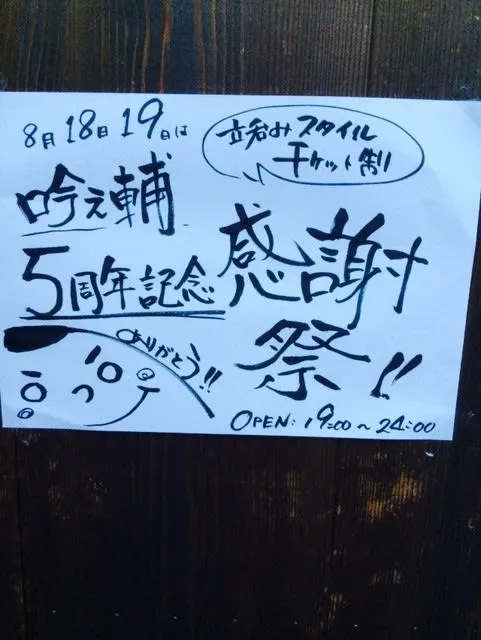 8月18日19日は
立呑みスタイル
チケット制
吟え輔
5周年記念
感謝
祭!!
ありがとう!!
OPEN: 19:00〜24:00